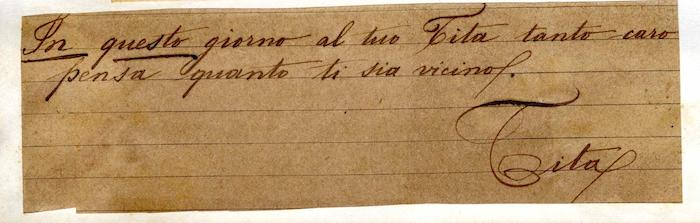 In questo giorno al tuo Tita tanto caro
pensa quanto ti sia vicino.
Tita